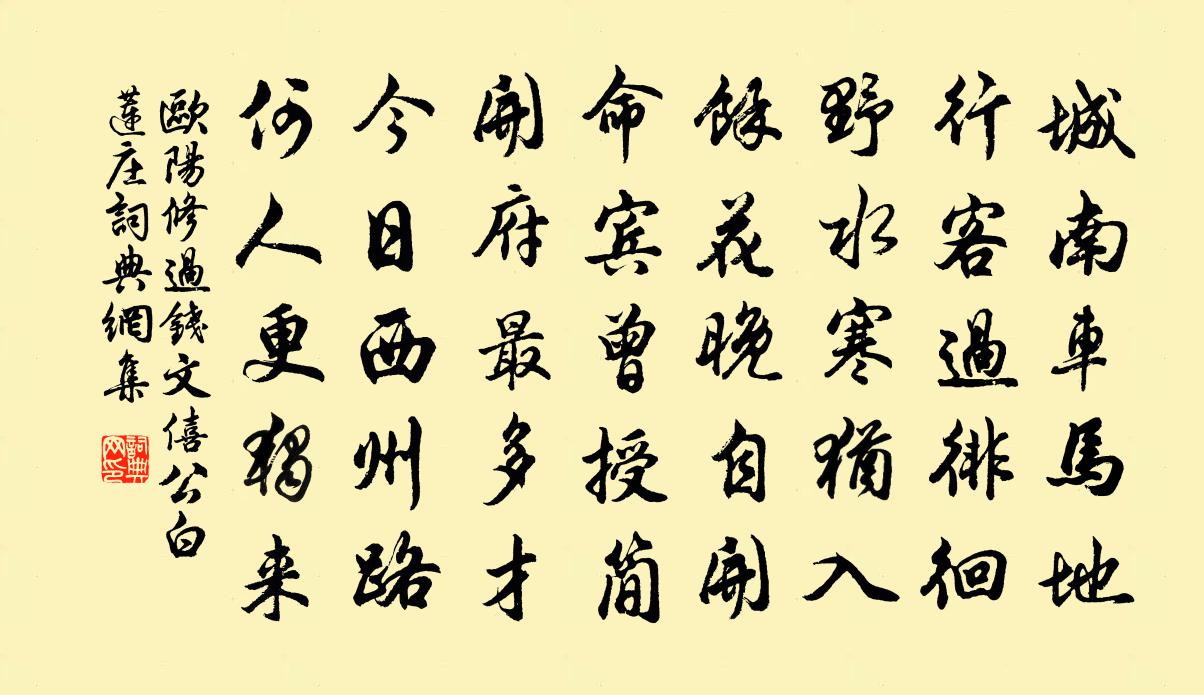 城南車馬地
行客過徘徊
野水寒猶入
餘花晚自開
命賓曾授簡
開府最多才
今日西州路
何人更獨来
歐陽修過錢文僖公白
蓮庄詞典網集
詞典网印